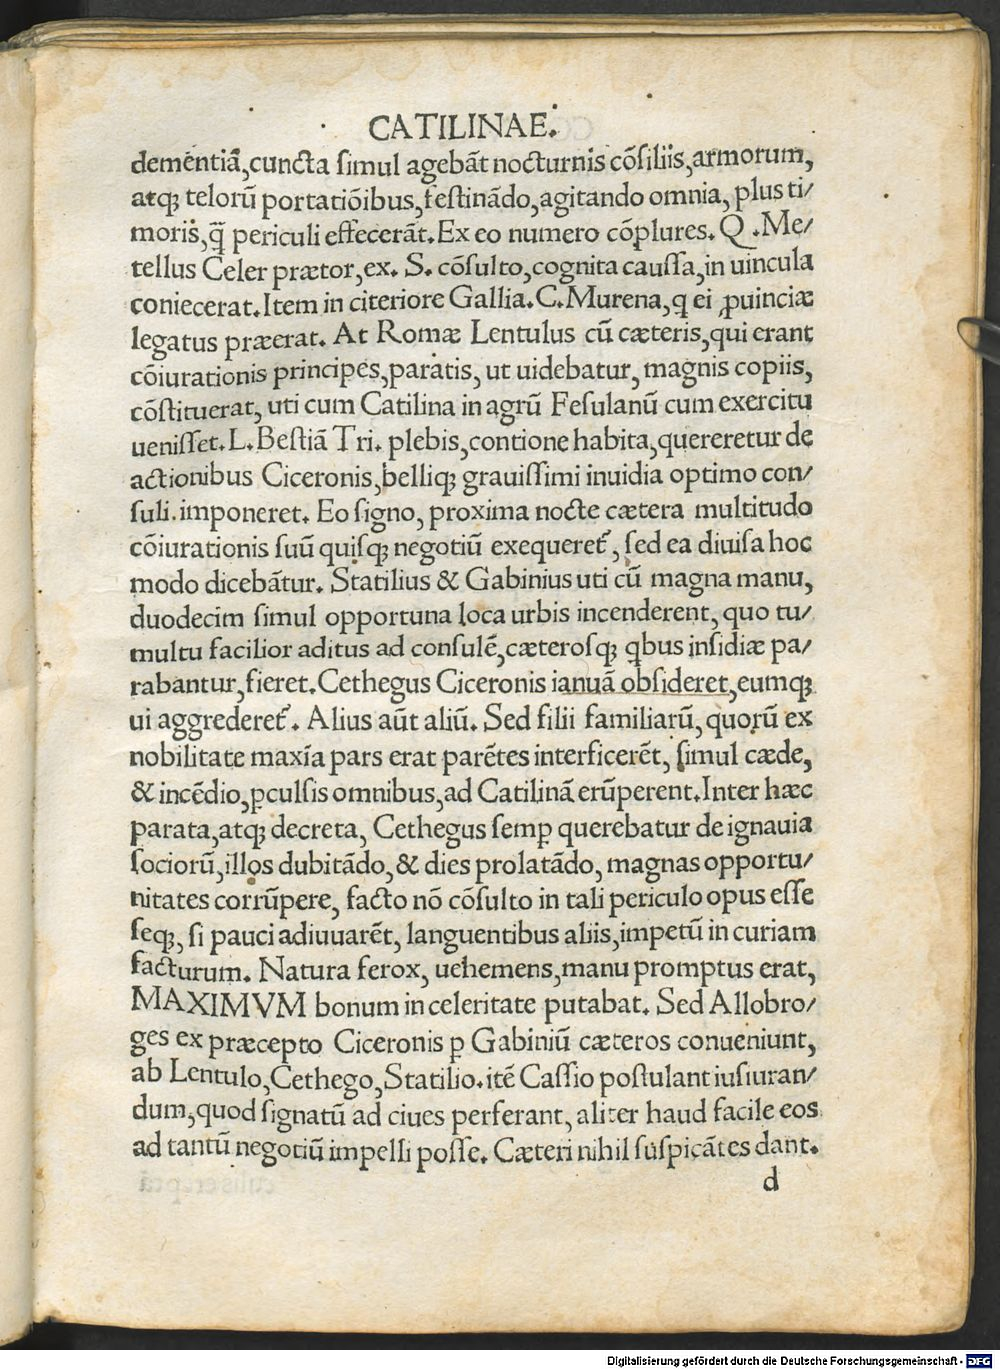 CATILINAE.
dementiã, cuncta simul agebãt nocturnis cõsiliis, armorum,
atqꝫ telorũ portatiõibus, festinãdo, agitando omnia, plus ti/
moris, q̃ periculi effecerãt. Ex eo numero cõplures. Q. Me/
tellus Celer prætor, ex. S. cõsulto, cognita caussa, in uincula
coniecerat. Item in citeriore Gallia. C. Murena, q ei ꝓuinciæ
legatus præerat. At Romæ Lentulus cũ cæteris, qui erant
cõiurationis principes, paratis, ut uidebatur, magnis copiis,
cõstituerat, uti cum Catilina in agrũ Fesulanũ cum exercitu
uenisset. L. Bestiã Tri. plebis, contione habita, quereretur de
actionibus Ciceronis, belliqꝫ grauissimi inuidia optimo con/
suli. imponeret. Eo signo, proxima nocte cætera multitudo
cõiurationis suũ quisqꝫ negotiũ exequeret᷑, sed ea diuisa hoc
modo dicebãtur. Statilius & Gabinius uti cũ magna manu,
duodecim simul opportuna loca urbis incenderent, quo tu/
multu facilior aditus ad consulẽ, cæterosqꝫ qbus insidiæ pa/
rabantur, fieret. Cethegus Ciceronis ianuã obsideret, eumqꝫ
ui aggrederet᷑. Alius aũt aliũ. Sed filii familiarũ, quorũ ex
nobilitate maxĩa pars erat parẽtes interficerẽt, simul cæde,
& incẽdio, ꝑculsis omnibus, ad Catilinã erũperent. Inter hæc
parata, atqꝫ decreta, Cethegus semꝑ querebatur de ignauia
sociorũ, illos dubitãdo, & dies prolatãdo, magnas opportu/
nitates corrũpere, facto nõ cõsulto in tali periculo opus esse
seqꝫ, si pauci adiuuarẽt, languentibus aliis, impetũ in curiam
facturum. Natura ferox, uehemens, manu promptus erat,
MAXIMVM bonum in celeritate putabat. Sed Allobro/
ges ex præcepto Ciceronis ꝑ Gabiniũ cæteros conueniunt,
ab Lentulo, Cethego, Statilio. itẽ Cassio postulant iusiuran/
dum, quod signatũ ad ciues perferant, aliter haud facile eos
ad tantũ negotiũ impelli posse. Cæteri nihil suspicãtes dant.
d
Digitalisierung gefördert durch die Deutsche Forschungsgemeinschaft - DFG